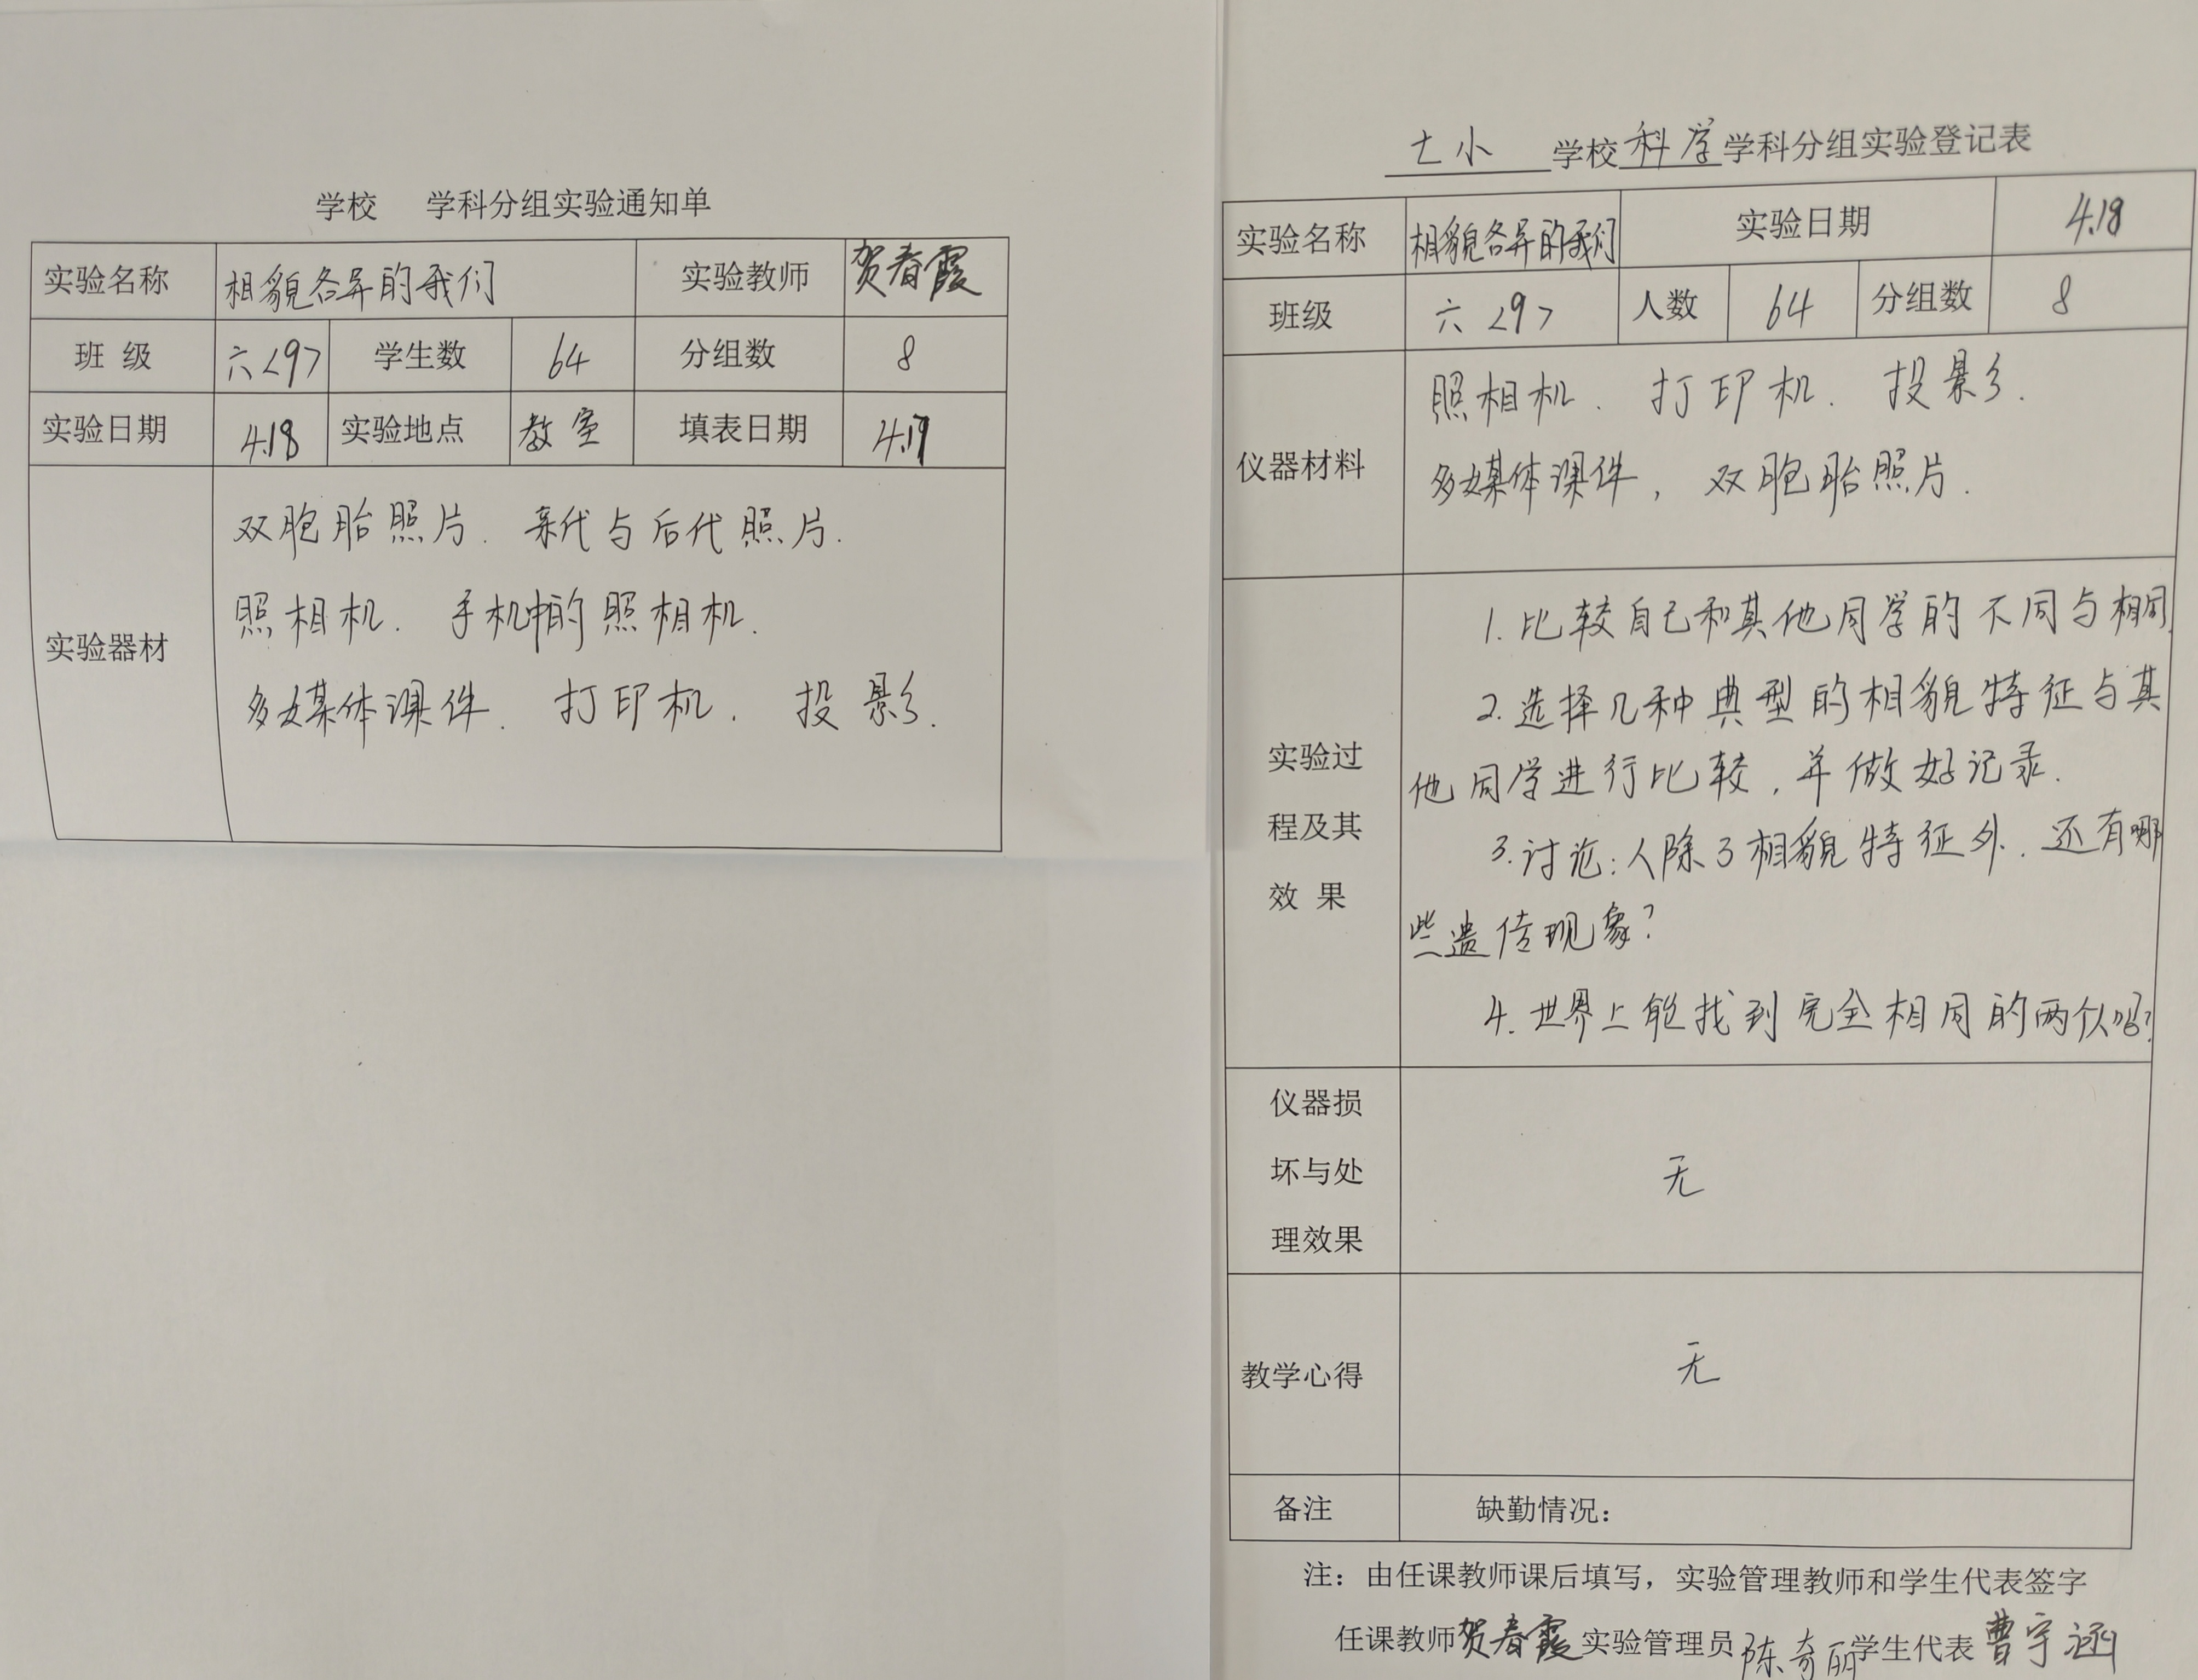 学校 学科分组实验通知单
实验名称 相貌各异的我们 实验教师 贺春霞
班 级 六<9> 学生数 64 分组数 8
实验日期 4.18 实验地点 教室 填表日期 4.17
双胞胎照片. 亲代与后代照片.
照相机. 手机中的照相机.
实验器材
多媒体课件. 打印机. 投影.
七小 学校 科学 学科分组实验登记表
实验名称 相貌各异的我们 实验日期 4.18
班级 六<9> 人数 64 分组数 8
照相机. 打印机. 投影.
仪器材料
多媒体课件, 双胞胎照片.
1. 比较自己和其他同学的不同与相同.
2. 选择几种典型的相貌特征与其
实验过
他同学进行比较,并做好记录.
程及其
3. 讨论:人除了相貌特征外.还有哪
效 果
些遗传现象?
4. 世界上能找到完全相同的两个人吗?
仪器损
坏与处
无
理效果
教学心得 无
备注 缺勤情况:
注:由任课教师课后填写,实验管理教师和学生代表签字
任课教师 贺春霞 实验管理员 陈奇丽 学生代表 曹宇涵